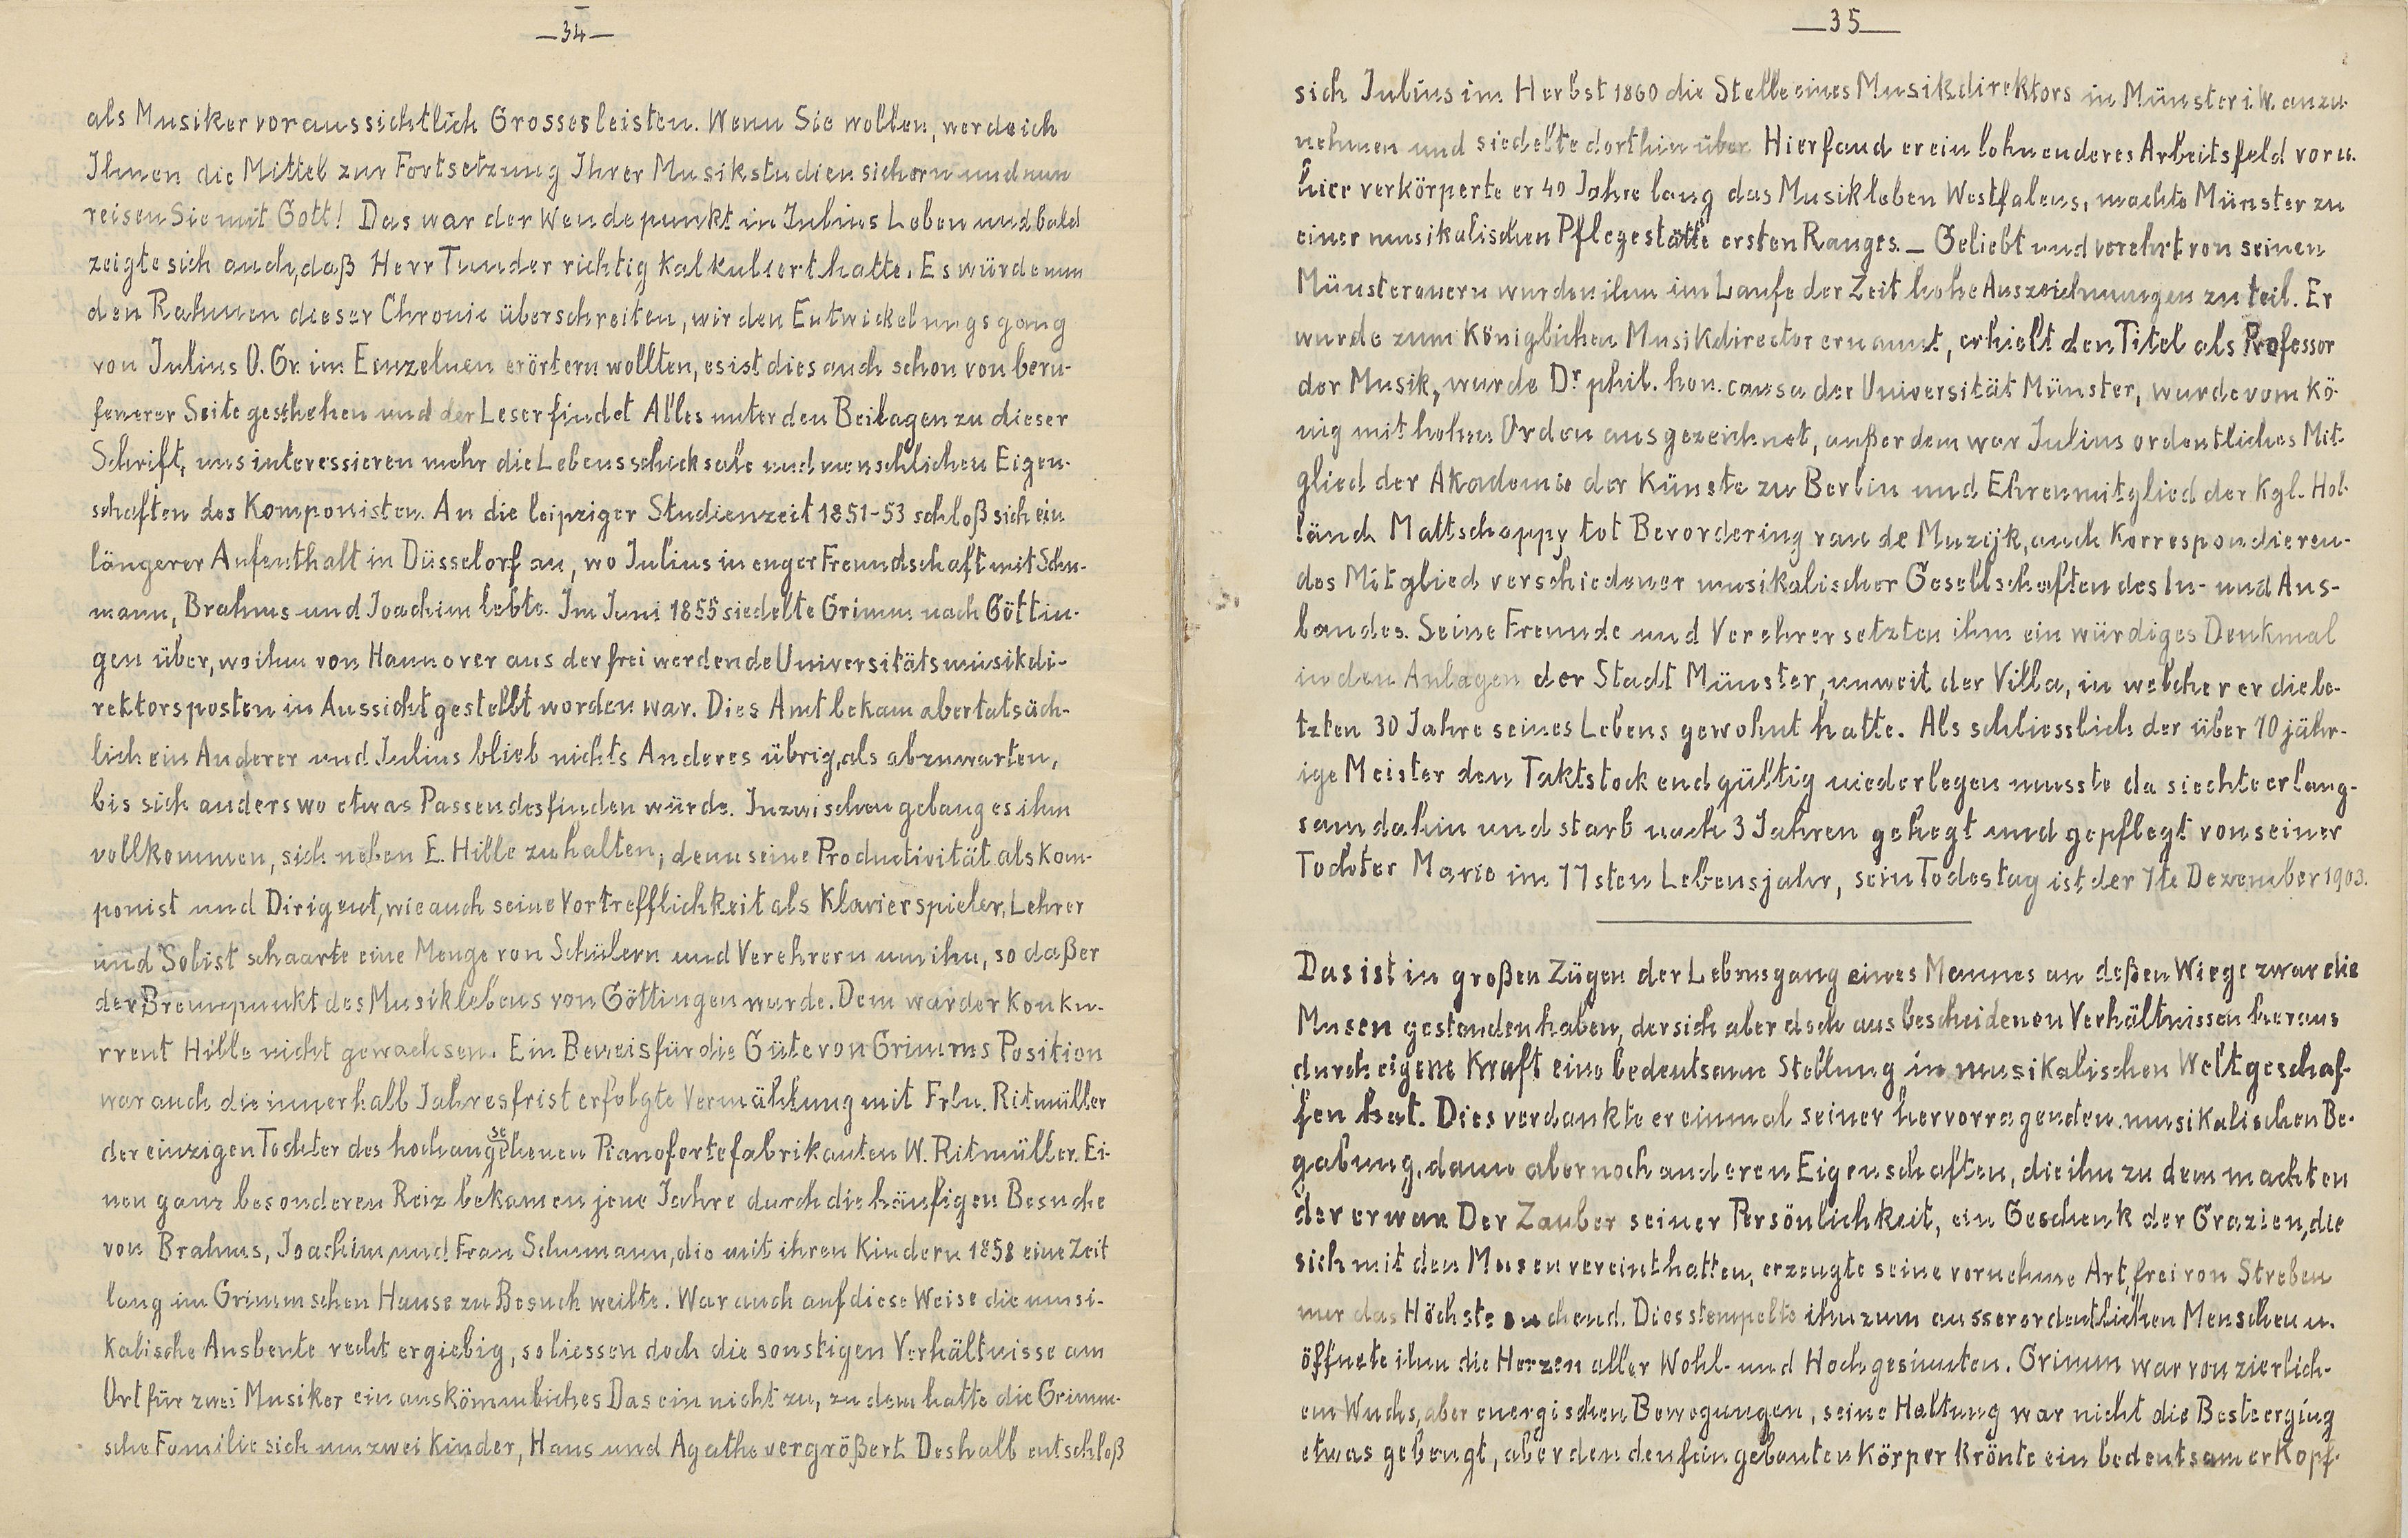 —34—
als Musiker voraussichtlich Grosses leisten. Wenn Sie wollen, werde ich
Ihnen die Mittel zur Fortsetzung Ihrer Musikstudien sichern und nun
reisen Sie mit Gott! Das war der Wendepunkt in Julius Leben und bald
zeigte sich auch, daß Herr Tunder richtig kalkuliert hatte. Es würde nun
den Rahmen dieser Chronic überschreiten, wir den Entwickelungsgang
von Julius O. Gr. im Einzelnen erörtern wollten, es ist dies auch schon von beru-
fenerer Seite geschehen und der Leser findet Alles unter den Beilagen zu dieser
Schrift, uns interessieren mehr die Lebensschicksale und menschlichen Eigen-
schaften des Komponisten. An die leipziger Studienzeit 1851-53 schloß sich ein
längerer Aufenthalt in Düsselorf an, wo Julius in enger Freundschaft mit Schu-
mann, Brahms und Joachim lebte. Im Juni 1855 siedelte Grimm nach Göttin-
gen über, wo ihm von Hannover aus der frei werdende Universitätsmusikdi-
rektorsposten in Aussicht gestellt worden war. Dies Amt bekam aber tatsäch-
lich ein Anderer und Julius blieb nichts Anderes übrig, als abzuwarten,
bis sich anderswo etwas Passendes finden würde. Inzwischen gelang es ihm
vollkommen, sich neben E. Hille zu halten; denn seine Productivität als Kom-
ponist und Dirigent, wie auch seine Vortrefflichkeit als Klavierspieler, Lehrer
und Solist schaarte eine Menge von Schülern und Verehrern um ihn, so daß er
der Brennpunkt des Musiklebens von Göttingen wurde. Dem war der Konku-
rrent Hille nicht gewachsen. Ein Beweis für die Güte von Grimms Position
war auch die innerhalb Jahresfrist erfolgte Vermählung mit Frln. Ritmüller
der einzigen Tochter des hochangesehenen Pianofortefabrikanten W. Ritmüller. Ei-
nen ganz besonderen Reiz bekamen jene Jahre durch die häufigen Besuche
von Brahms, Joachim und Frau Schumann, die mit ihren Kindern 1858 eine Zeit
lang im Grimmschen Hause zu Besuch weilte. War auch auf diese Weise die musi-
kalische Ausbeute recht ergiebig, so liessen doch die sonstigen Verhältnisse am
Ort für zwei Musiker ein auskömmliches Dasein nicht zu, zudem hatte die Grimm-
sche Familie sich um zwei Kinder, Hans und Agathe vergrößert. Deshalb entschloß
—35—
sich Julius im Herbst 1860 die Stelle eines Musikdirektors in Münster i. W. anzu-
nehmen und siedelte dorthin über. Hier fand er ein lohnenderes Arbeitsfeld vor u.
hier verkörperte er 40 Jahre lang das Musikleben Westfalens, machte Münster zu
einer musikalischen Pflegestätte ersten Ranges. — Geliebt und verehrt von seinen
Münsteranern wurden ihm im Laufe der Zeit hohe Auszeichnungen zu teil. Er
wurde zum Königlichen Musikdirector ernannt, erhielt den Titel als Professor
der Musik, wurde Dr phil. hon. causa der Universität Münster, wurde vom Kö-
nig mit hohen Orden ausgezeichnet, außerdem war Julius ordentliches Mit-
glied der Akademie der Künste zu Berlin und Ehrenmitglied der Kgl. Hol-
länd Mattschappy tot Bevordering van de Muzijk, auch Korrespondieren-
des Mitglied verschiedener musikalischer Gesellschaften des In- und Aus-
landes. Seine Freunde und Verehrer setzten ihm ein würdiges Denkmal
in den Anlagen der Stadt Münster, unweit der Villa, in welcher er die le-
tzten 30 Jahre seines Lebens gewohnt hatte. Als schliesslich der über 70 jähr-
ige Meister den Taktstock endgültig niederlegen musste da siechte er lang-
sam dahin und starb nach 3 Jahren gehegt und gepflegt von seiner
Tochter Marie im 77sten Lebensjahr, sein Todestag ist der 7te Dezember 1903.
Das ist in großen Zügen der Lebensgang eines Mannes an deßen Wiege zwar die
Musen gestanden haben, der sich aber doch aus bescheidenen Verhältnissen heraus
durch eigene Kraft eine bedeutsame Stellung in musikalischen Welt geschaf-
fen hat. Dies verdankte er einmal seiner hervorragenden musikalischen Be-
gabung, dann aber noch anderen Eigenschaften, die ihn zu dem machten
der er war. Der Zauber seiner Persönlichkeit, ein Geschenk der Grazien, die
sich mit den Musen vereint hatten, erzeugte seine vornehme Art, frei von Streben
nur das Höchste suchend. Dies stempelte ihn zum ausserordentlichen Menschen u.
öffnete ihm die Herzen aller Wohl- und Hochgesinnten. Grimm war von zierlich-
em Wuchs, aber energischen Bewegungen, seine Haltung war nicht die Beste er ging
etwas gebeugt, aber den den fein gebauten Körper krönte ein bedeutsamer Kopf.